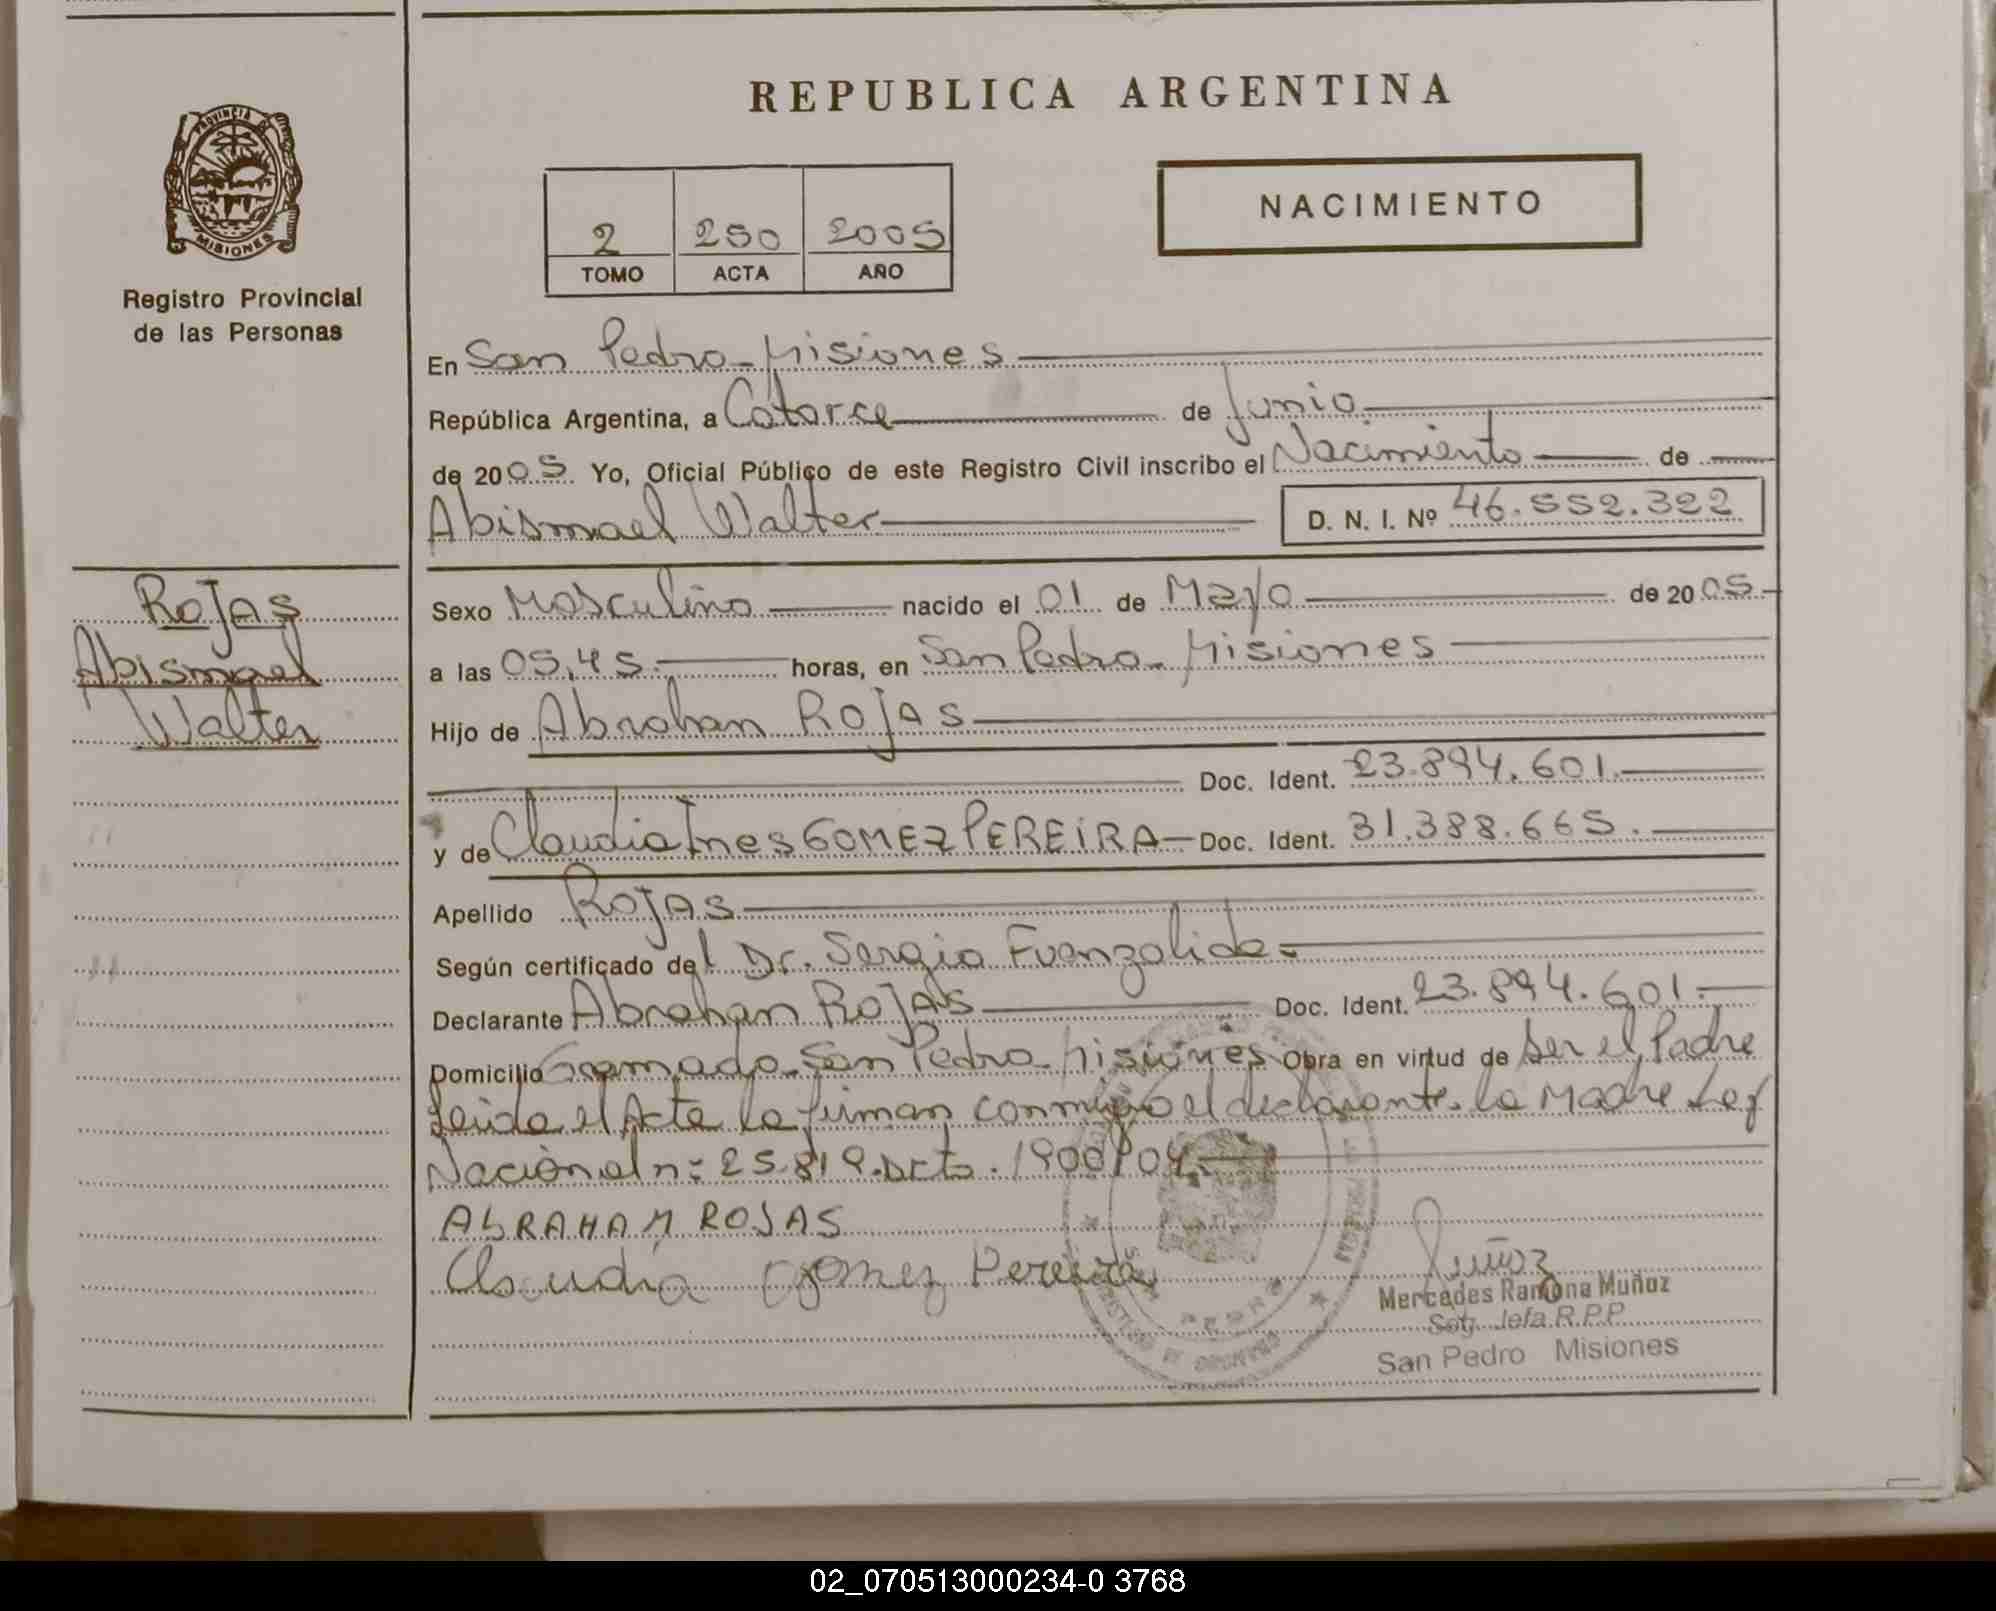 REPUBLICA ARGENTINA
PROVINCIA DE MISIONES
Registro Provincial
de las Personas
NACIMIENTO
2 250 2005
TOMO ACTA AÑO
En San Pedro - Misiones
República Argentina, a Catorce de Junio
de 2005 Yo, Oficial Público de este Registro Civil inscribo el Nacimiento de
Abismael Walter D. N. I. Nº 46.552.322
Rojas
Abismael
Walter
Sexo Masculino nacido el 01 de Mayo de 2005
a las 05,45 horas, en San Pedro - Misiones
Hijo de Abrahan ROJAS
Doc. Ident. 23.894.601.
y de Claudia Ines GOMEZ PEREIRA Doc. Ident. 31.388.665.
Apellido ROJAS
Según certificado del Dr. Sergio Fuenzalida
Declarante Abrahan ROJAS Doc. Ident. 23.894.601.
Domicilio Gramado - San Pedro - Misiones Obra en virtud de ser el Padre
Leida el Acta la firman conmigo el declarante. la Madre Ley
Nacional n: 25.819. Dcto. 1900/04.
ABRAHAM ROJAS
Claudia gomez Pereira
Muñoz
Mercedes Ramona Muñoz
Jefa R.P.P.
San Pedro Misiones
02_070513000234-0 3768